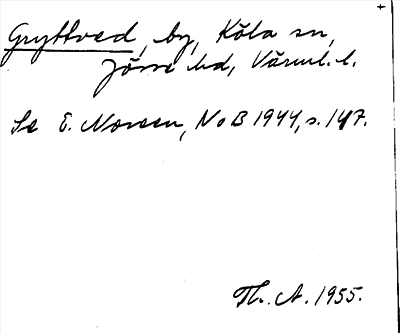 Gryttved, by, Köla sn,
Jösse hd, Värml. l.
Se E. Noreen, NoB 1944, s. 147.
Th. A. 1955.